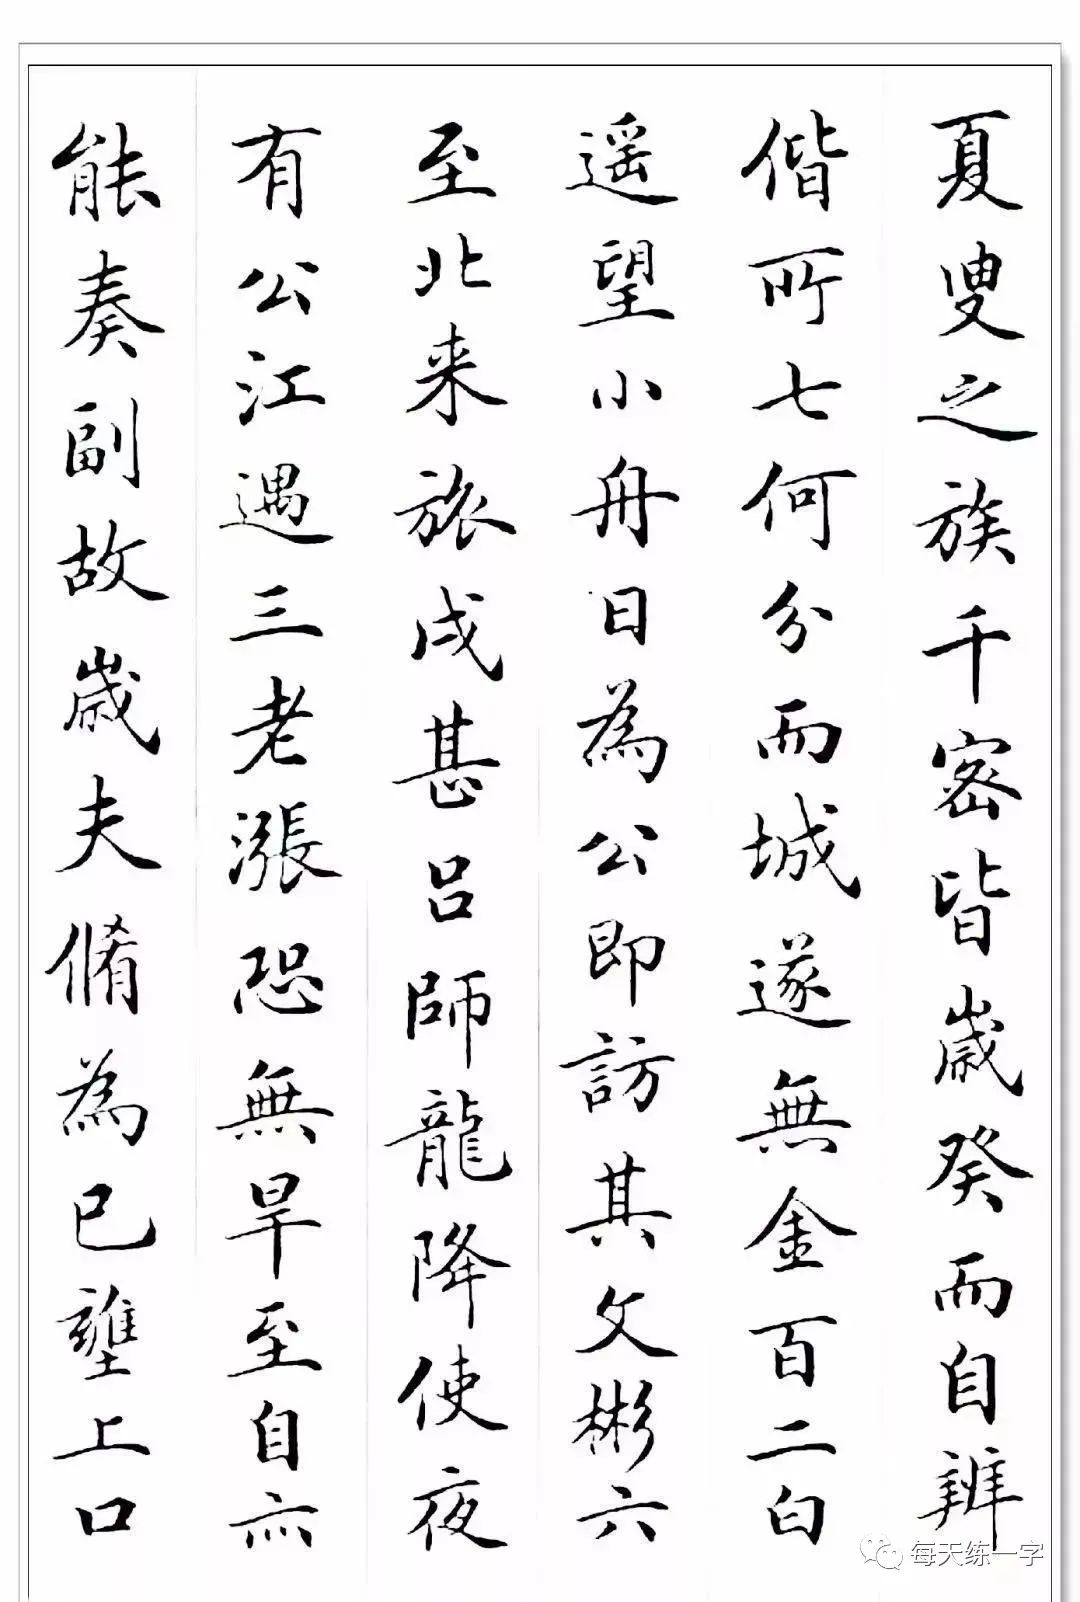 夏叟之族千密皆歲癸而自辨
偕所七何分而城遂無金百二白
遥望小舟日為公即訪其文彬六
至北来旅戌甚吕師龍降使夜
有公江遇三老漲恐無旱至自亦
能奏副故歲夫脩為已壅上口
每天练一字